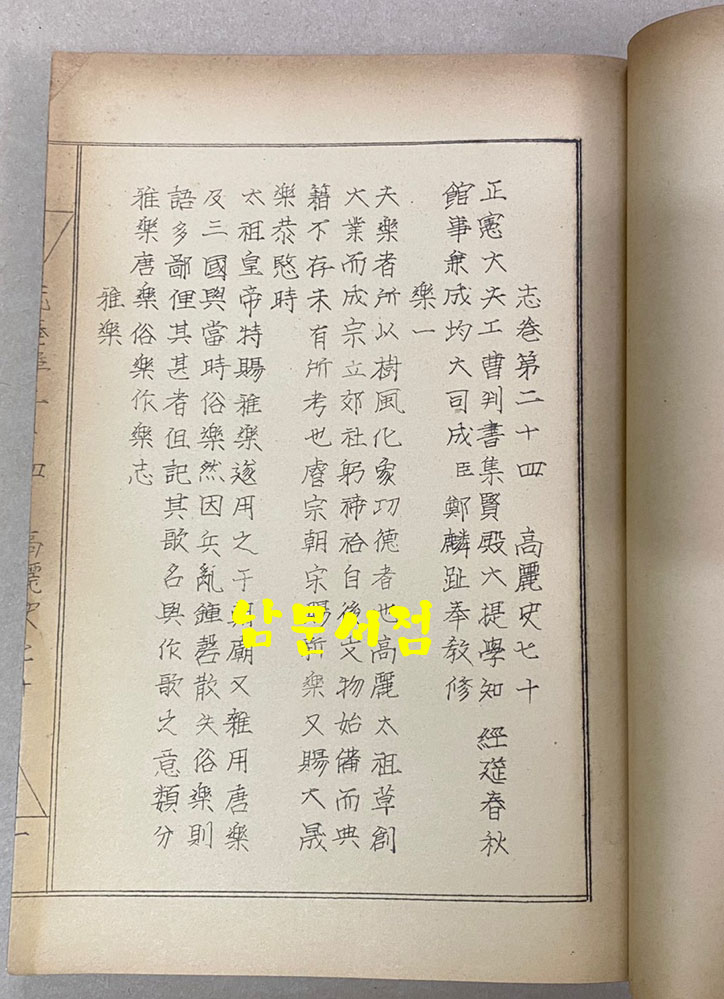 志卷第二十四 高麗史七十
正憲大夫工曹判書集賢殿大提學知 經筵春秋
館事兼成均大司成臣鄭麟趾奉教修
樂一
夫樂者所以樹風化象功德者也高麗太祖草創
大業而成宗立郊社躬禘祫自後文物始備而典
籍不存未有所考也睿宗朝宋賜新樂又賜大晟
樂恭愍時
太祖皇帝特賜雅樂遂用之于朝廟又雜用唐樂
及三國與當時俗樂然因兵亂鍾磬散失俗樂則
語多鄙俚其甚者但記其歌名與作歌之意類分
雅樂唐樂俗樂作樂志
雅樂
高麗史七十
一
남문서점